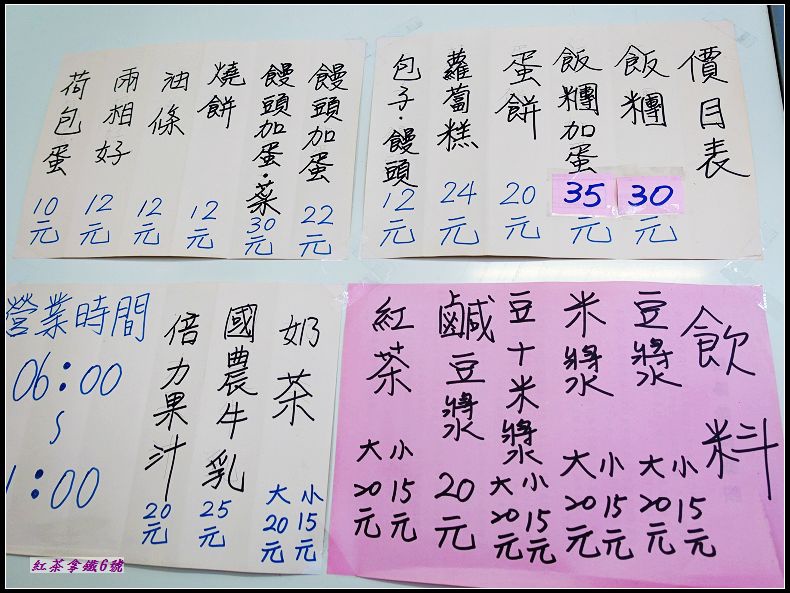 價目表
飯糰 30元
飯糰加蛋 35元
蛋餅 20元
蘿蔔糕 24元
包子·饅頭 12元
饅頭加蛋 22元
饅頭加蛋·菜 30元
燒餅 12元
油條 12元
兩相好 12元
荷包蛋 10元
飲料
豆漿 小15元 大20元
米漿 小15元 大20元
豆十米漿 小15元 大20元
鹹豆漿 20元
紅茶 小15元 大20元
奶茶 小15元 大20元
國農牛乳 25元
倍力果汁 20元
營業時間
06:00
~
1:00
紅茶拿鐵6號